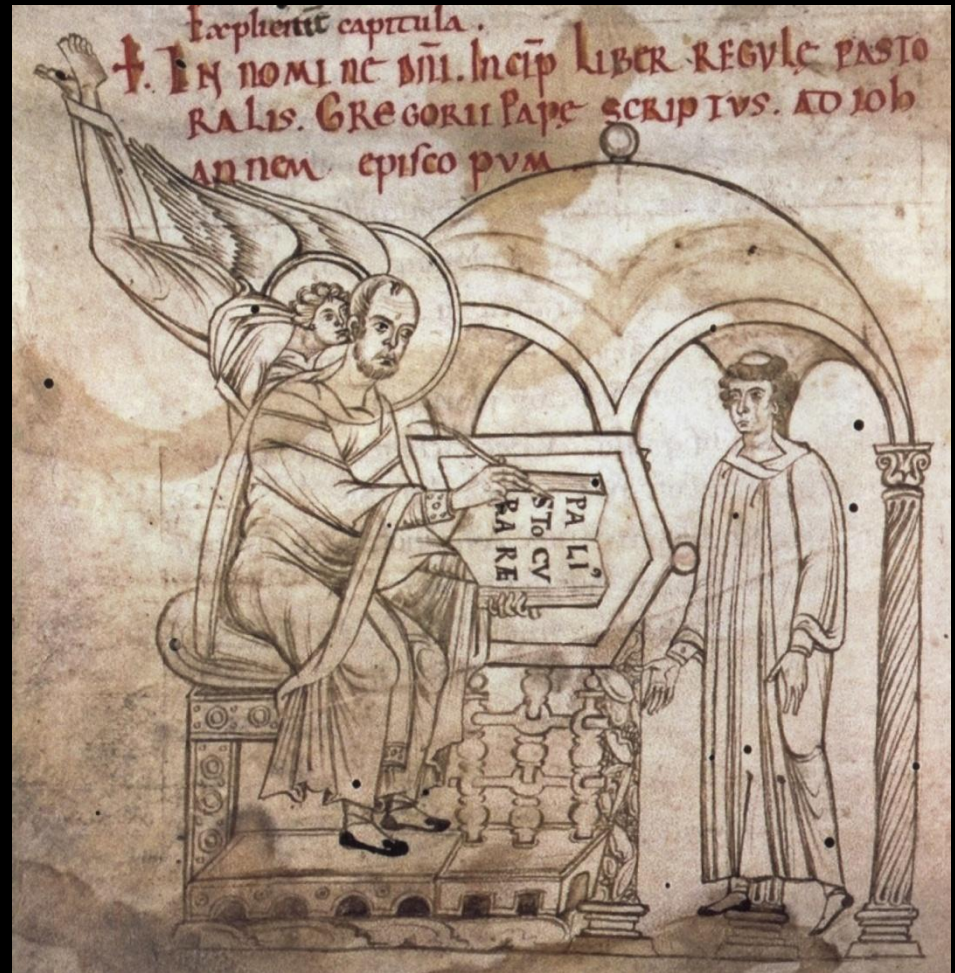 capitula .
✝. IN NOMINE DN̄I. Incip̄ LIBER REGVLĘ PASTO
RALIS. GREGORII Papę SCRIPTVS. AD IOh
ANNEM episcopVM
PA LI’
STo CV
RA RE